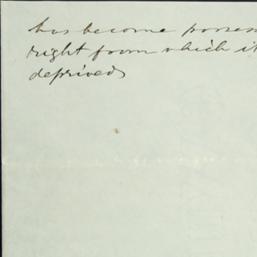 has become possess
right from which it
deprived